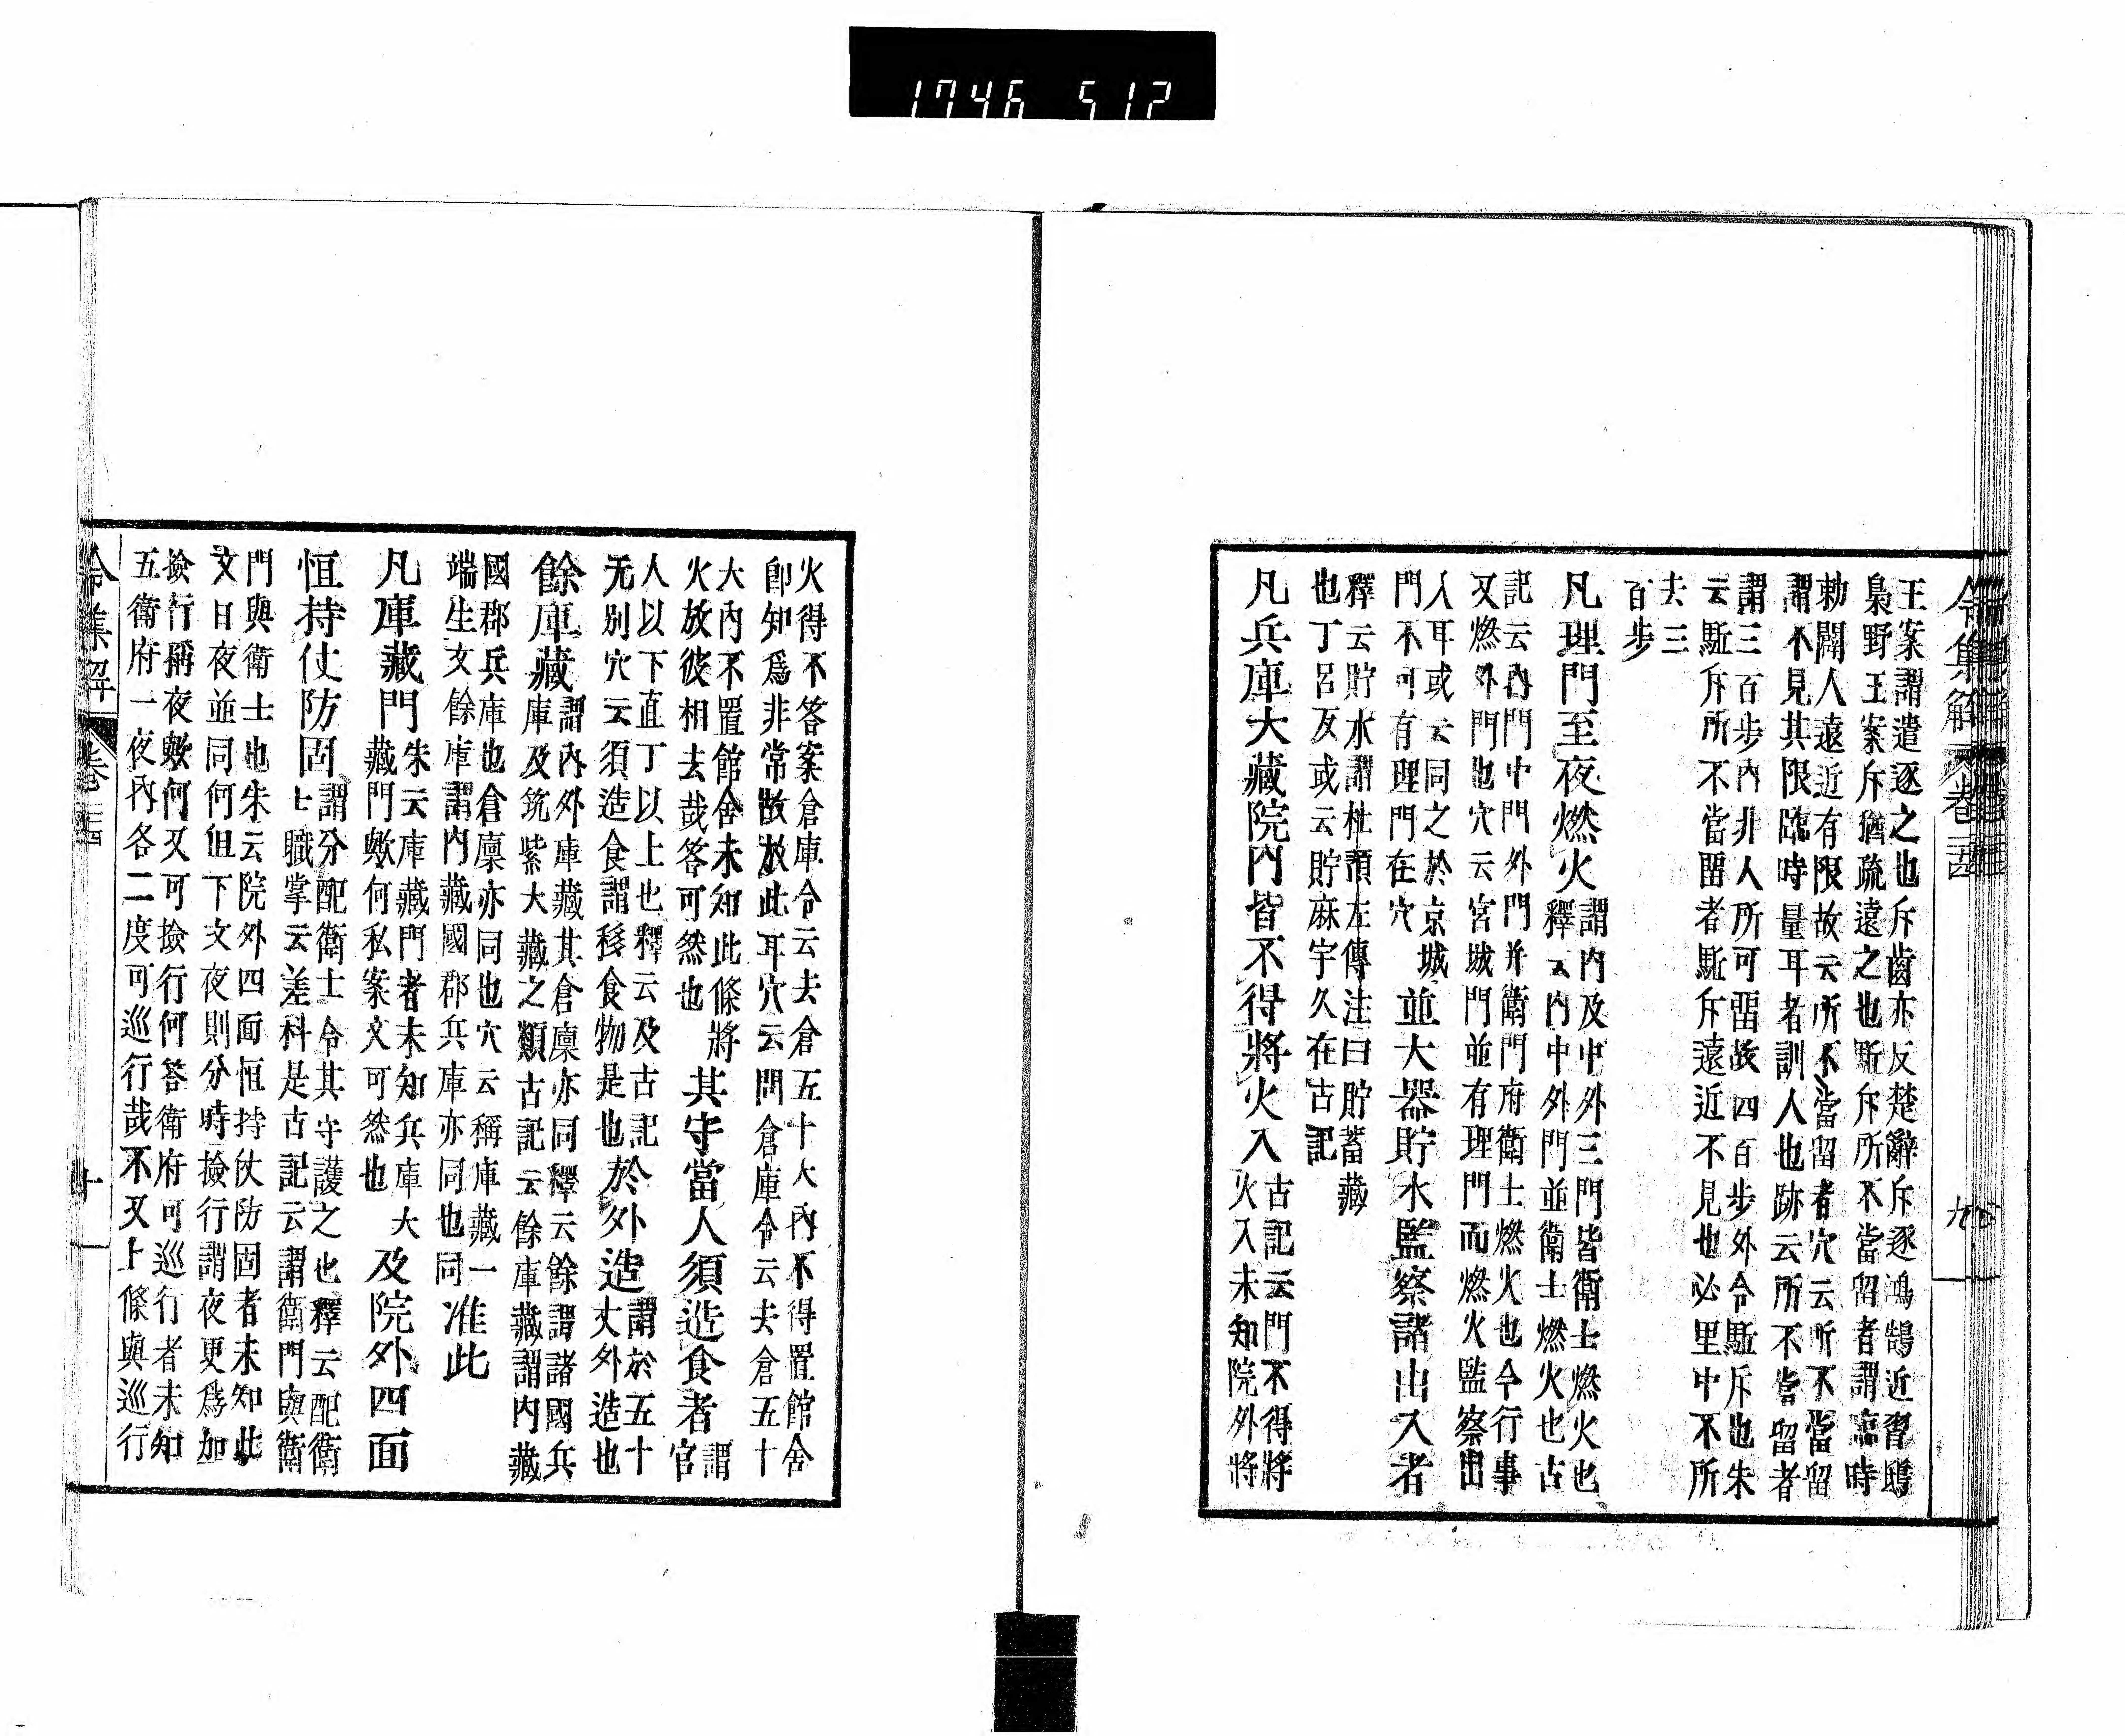 1746 512
令集解 卷二十四 九
王案謂遣逐之也斥齒亦反楚辭斥逐鴻鵠近習鴟
梟野王案斥猶疏遠之也斷斥所不當留者謂臨時
勅闈人遠近有限故云所不當留者穴云所不當留
謂不見其限臨時量耳者訓人也跡云所不當留者
謂三百步內非人所可留故四百步外令駈斥也朱
云駈斥所不當留者駈斥遠近不見也必里中不所
去三
百步
凡理門至夜燃火
謂內及中外三門皆衛士燃火也
釋云內中外門並衛士燃火也古
記云內門中門外門并衛門府衛士燃火也今行事
又燃外門也穴云宮城門並有理門而燃火監察出
入耳或云同之於京城
門不可有理門在穴
並大器貯水監察諸出入者
釋云貯水謂杜預左傳注曰貯蓄藏
也丁呂反或云貯麻宇久在古記
凡兵庫大藏院內皆不得將火入
古記云門不得將
火入未知院外將
火得不答案倉庫令云去倉五十大內不得置館舍
卽知爲非常故放此耳穴云問倉庫令云去倉五十
大內不置館舍未知此條將
火放彼相去哉答可然也
其守當人須造食者
謂
官
人以下直丁以上也釋云及古記
无別穴云須造食謂移食食物是也
於外造
謂於五十
丈外造也
餘庫藏
謂內外庫藏其倉廩亦同釋云餘謂諸國兵
庫及筑紫大藏之類古記云餘庫藏謂內藏
國郡兵庫也倉廩亦同也穴云稱庫藏一
端生文餘庫謂內藏國郡兵庫亦同也同
准此
凡庫藏門
朱云庫藏門者未知兵庫大
藏門歟何私案文可然也
及院外四面
恒持仗防固
謂分配衛士令其守護之也釋云配衛
士職掌云差科是古記云謂衛門與衛
門與衛士也朱云院外四面恒持仗防固者未知此
文日夜並同何但下文夜則分時撿行謂夜更爲加
撿行稱夜歟何又可撿行何答衛府可巡行者未知
五衛府一夜內各二度可巡行哉不又上條與巡行
令集解 卷二十四 十